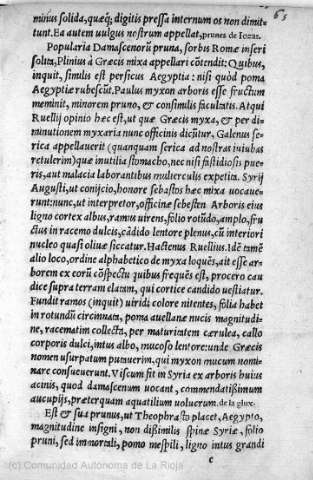 65
minus solida, quæq; digitis pressa internum os non dimit-
tunt. Ea autem uulgus nostrum appellat, prunes de Iozas.
Popularia Damascenorũ pruna, sorbis Romæ inseri
solita, Plinius à Græcis mixa appellari cõtendit: Quibus,
inquit, simili est persicus Aegyptia: nisi quòd poma
Aegyptiæ rubescũt. Paulus myxon arboris esse fructum
meminit, minorem pruno, & consimilis facultatis. Atqui
Ruellij opinio hæc est, ut quæ Græcis myxa, & per di-
minutionem myxaria nunc officinis dicũtur, Galenus se-
rica appellauerit (quanquam serica ad nostras iuiubas
retulerim) quæ inutilia stomacho, nec nisi fastidiosis pue-
ris, aut malacia laborantibus mulierculis expetita. Syrij
Augusti, ut conijcio, honore sebastos hæc mixa uocaue-
runt: nunc, ut interpretor, officinæ sebesten. Arboris eius
ligno cortex albus, ramus uirens, folio rotũdo, amplo, fru-
ctus in racemo dulcis, cãdido lentore plenus, cũ interiori
nucleo quasi oliuæ siccatur. Hactenus Ruellius. Idē tamē
alio loco, ordine alphabetico de myxa loquẽs, ait esse ar-
borem ex eorũ cõspectu quibus frequẽs est, procero cau
dice supra terram elatam, qui cortice candido uestiatur.
Fundit ramos (inquit) uiridi colore nitentes, folia habet
in rotundũ circinata, poma auellanæ nucis magnitudi-
ne, racematim collecta, per maturitatem cærulea, callo
corporis dulci, intus albo, mucoso lentore: unde Græcis
nomen usurpatum putauerim, qui myxon mucum nomi-
nare consueuerunt. Viscum fit in Syria ex arboris huius
acinis, quod damascenum uocant, commendatißimum
aucupijs, præterquam aquatilium uolucrum. de la glux.
Est & sua prunus, ut Theophrasto placet, Aegypto,
magnitudine insigni, non dißimilis spinæ Syriæ, folio
pruni, sed immortali, pomo mespili, ligno intus grandi
c
(c) Comunidad Autónoma de La Rioja